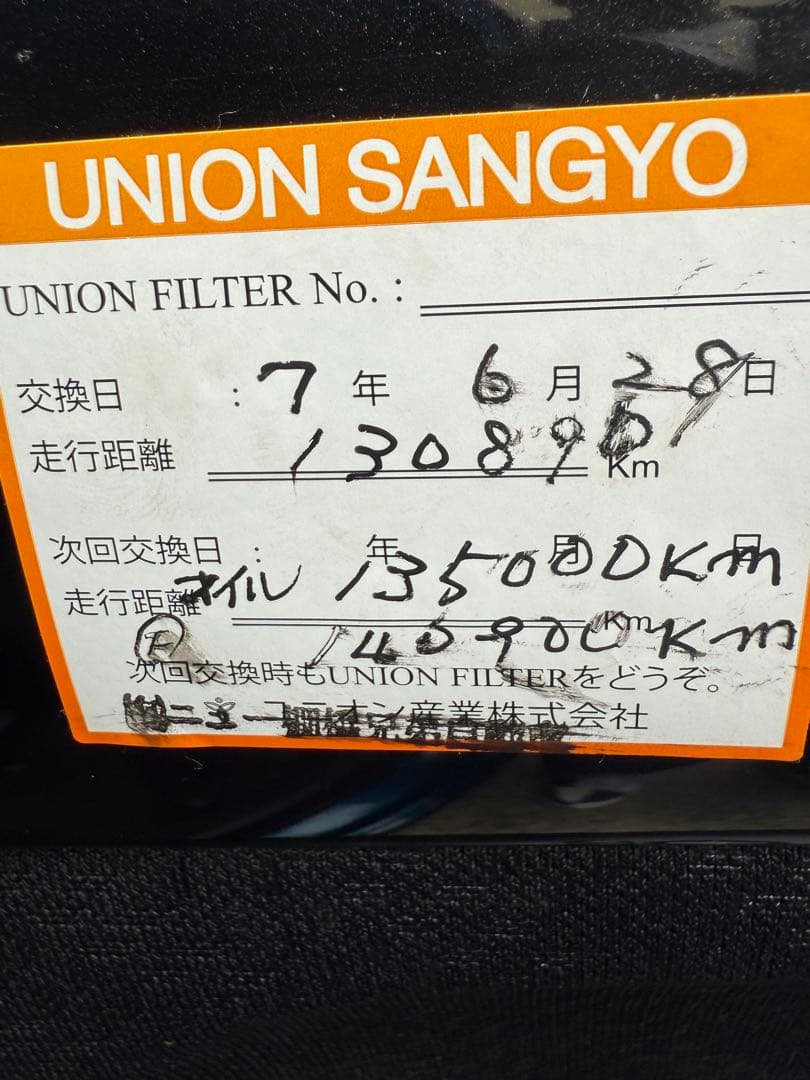 UNION SANGYO
UNION FILTER No. :
交換日 : 7 年 6 月 28 日
走行距離 130890 Km
次回交換日 : 年 月 日
走行距離 オイル 135000Km Km
Ⓕ 140900Km
次回交換時もUNION FILTERをどうぞ。
ユニオン産業株式会社